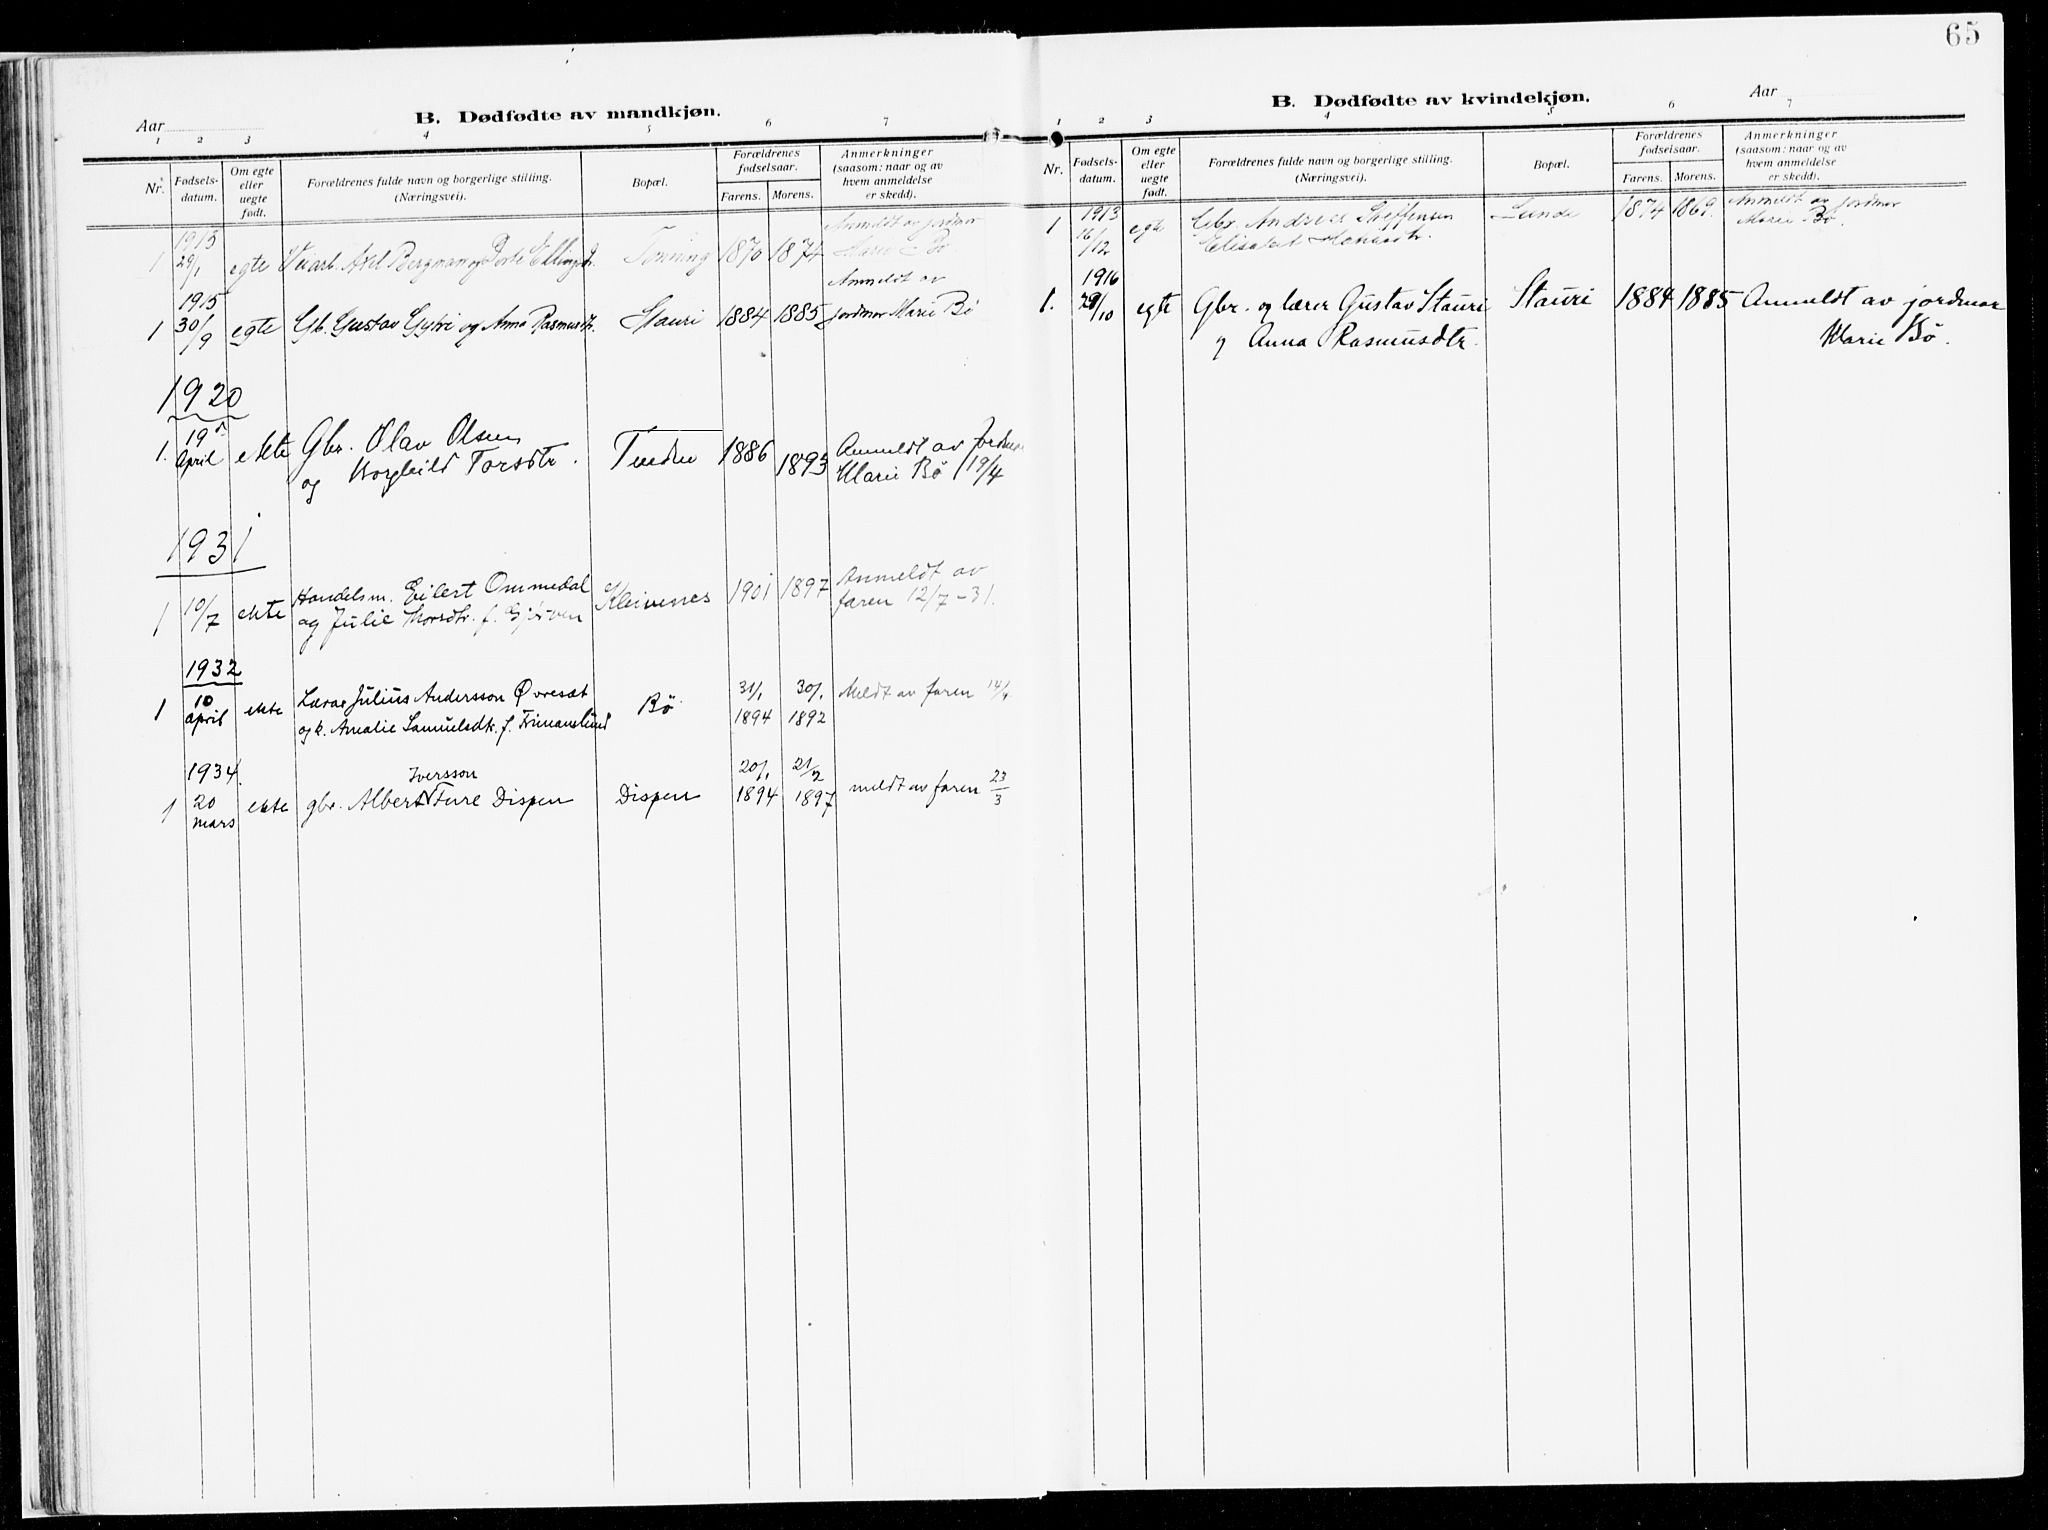 65
B. Dødfødte av mandkjøn.
Aar
1 2 3 4 5 6 7
Nr. Fødsels-datum. Om egte eller uegte født. Forældrenes fulde navn og borgerlige stilling. (Næringsvei). Bopæl. Forældrenes fødselsaar. Farens. Morens. Anmerkninger (saasom: naar og av hvem anmeldelse er skedd).
1913 Anmeldt av jordmor
1 29/1 egte Axel Bergman og Berte Tønning 1870 1874 Marie Bø
1915 Anmeldt av
1 30/9 egte Gb. Gustav og Anna Rasmusdtr. Stauri 1884 1885 jordmor Marie Bø
1920
1. 19de April ekte Gbr. Olav Olsen 1886 1893 Anmeldt av Jordmor
og Borghild Torsdtr. Marie Bø 19/4
1931
1 10/7 ekte Handelsm. Eilert Ommedal Kleivenes 1901 1897 Anmeldt av
og Julie f. faren 12/7-31.
1932
1 10 april ekte Lærar Julius Andersson Øvresæt Bø 31/1 1894 30/1 1892 Meldt av faren 14/4
og k. Amalie Samuelsdtr. f. Trimanslund
1934. Iversson 20/1 21/2
1 20 mars ekte gbr. Albert Ture Dispen Dispen 1894 1897 meldt av faren 23/3
B. Dødfødte av kvindekjøn.
Aar
1 2 3 4 5 6 7
Nr. Fødsels-datum. Om egte eller uegte født. Forældrenes fulde navn og borgerlige stilling. (Næringsvei). Bopæl. Forældrenes fødselsaar. Farens. Morens. Anmerkninger (saasom: naar og av hvem anmeldelse er skedd).
1913
1 16/12 egte Gbr. Andreas Steffensen Lunde 1874 1869. Anmeldt av jordmor
Elisabet Marie Bø.
1916
1. 29/10 egte Gbr. og lærer Gustav Stauri Stauri 1884 1885 Anmeldt av jordmor
og Anna Rasmusdtr. Marie Bø.